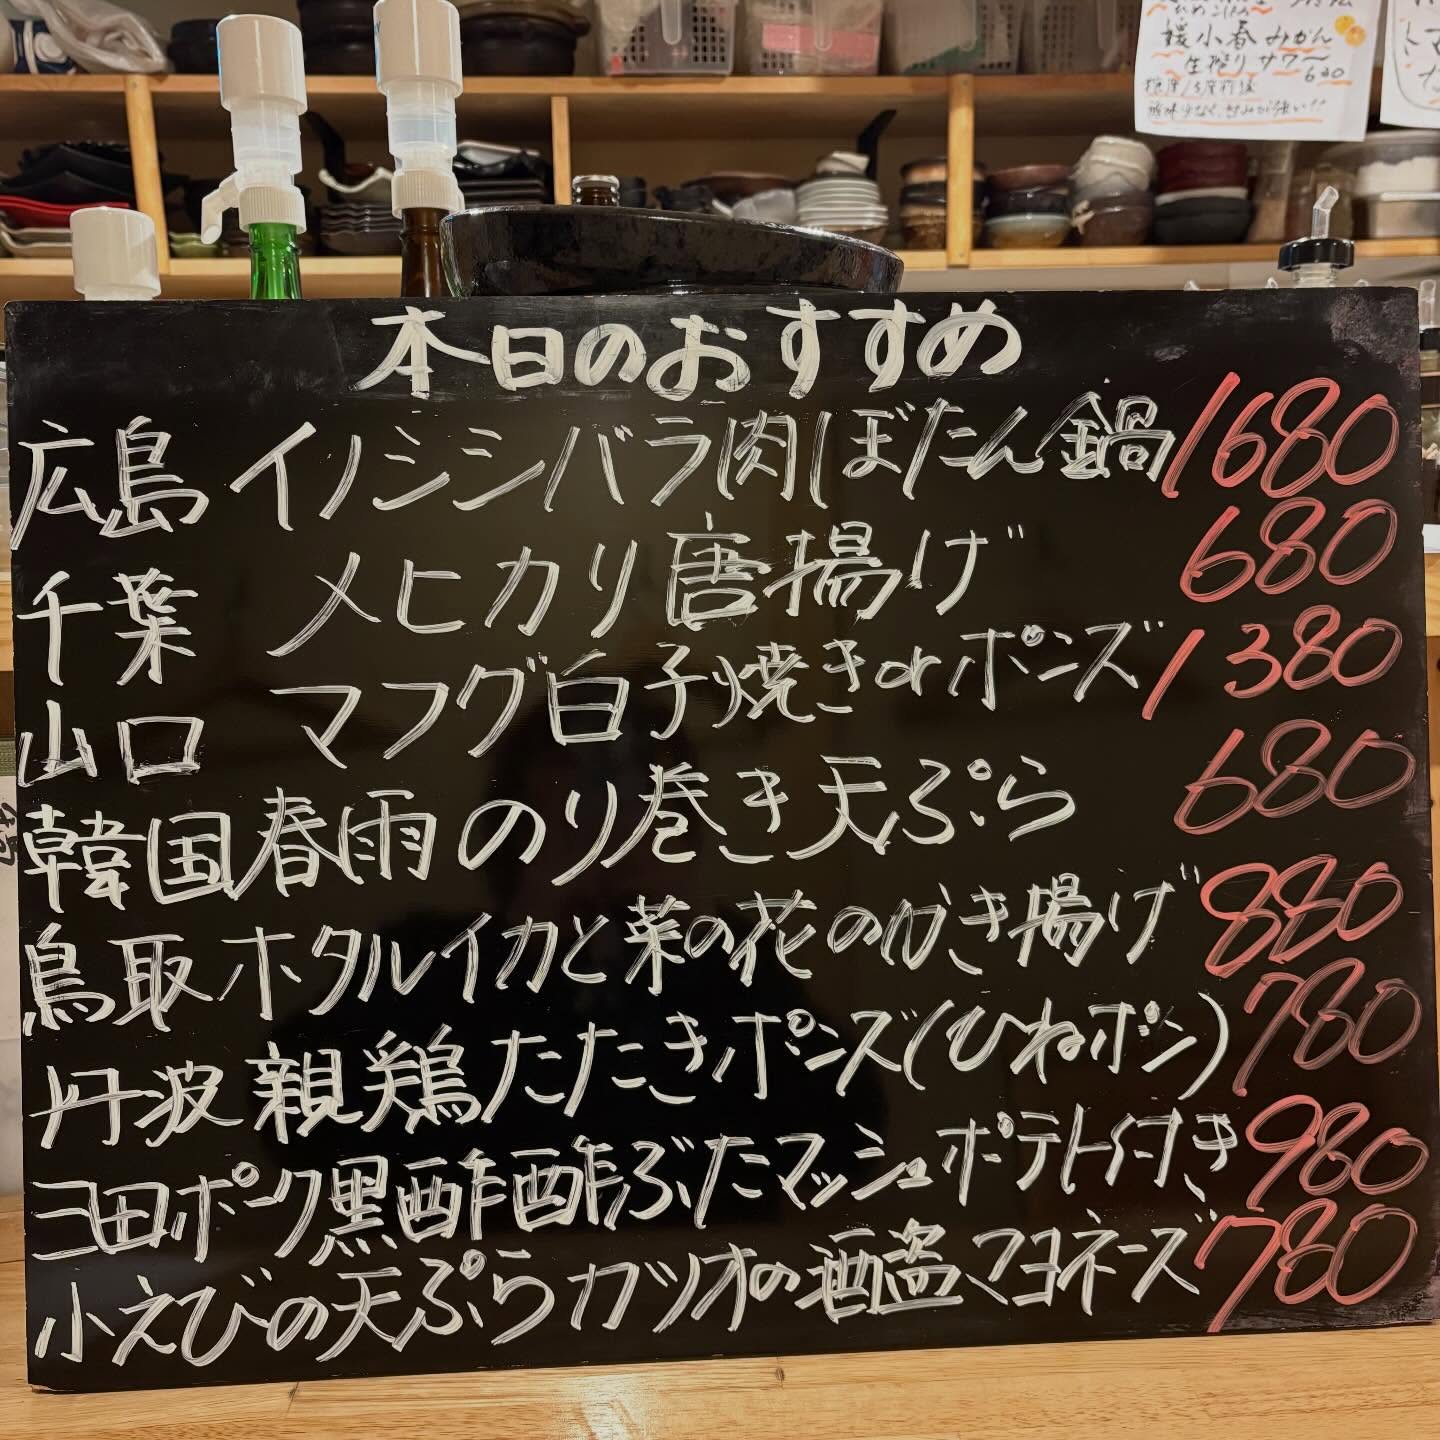 媛小春みかん
生搾りサワー
630
本日のおすすめ
広島 イノシシバラ肉ぼたん鍋 1680
千葉 メヒカリ唐揚げ 680
山口 マフグ白子焼きorポンズ 1380
韓国春雨のり巻き天ぷら 680
鳥取ホタルイカと菜の花のかき揚げ 880
丹波親鶏たたきポンズ(ひねポン) 780
三田ポーク黒酢酢ぶたマッシュポテト付き 980
小えびの天ぷらカツオの酒盗マヨネーズ 780